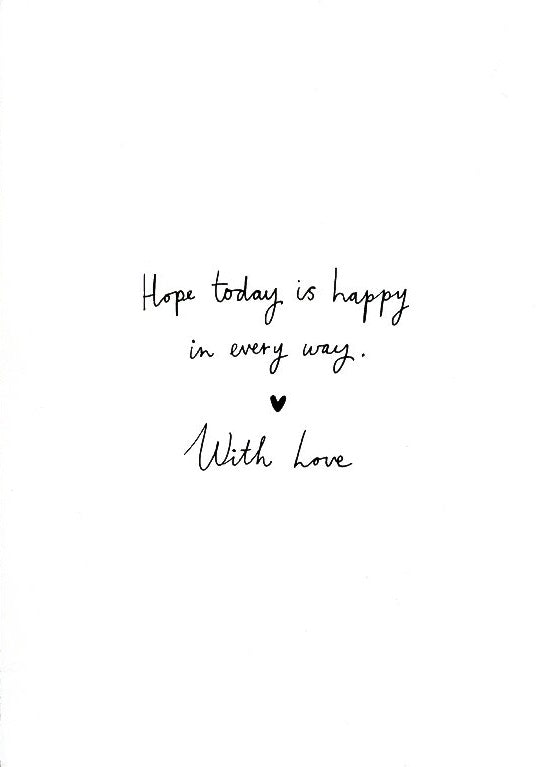 Hope today is happy
in every way.
With Love